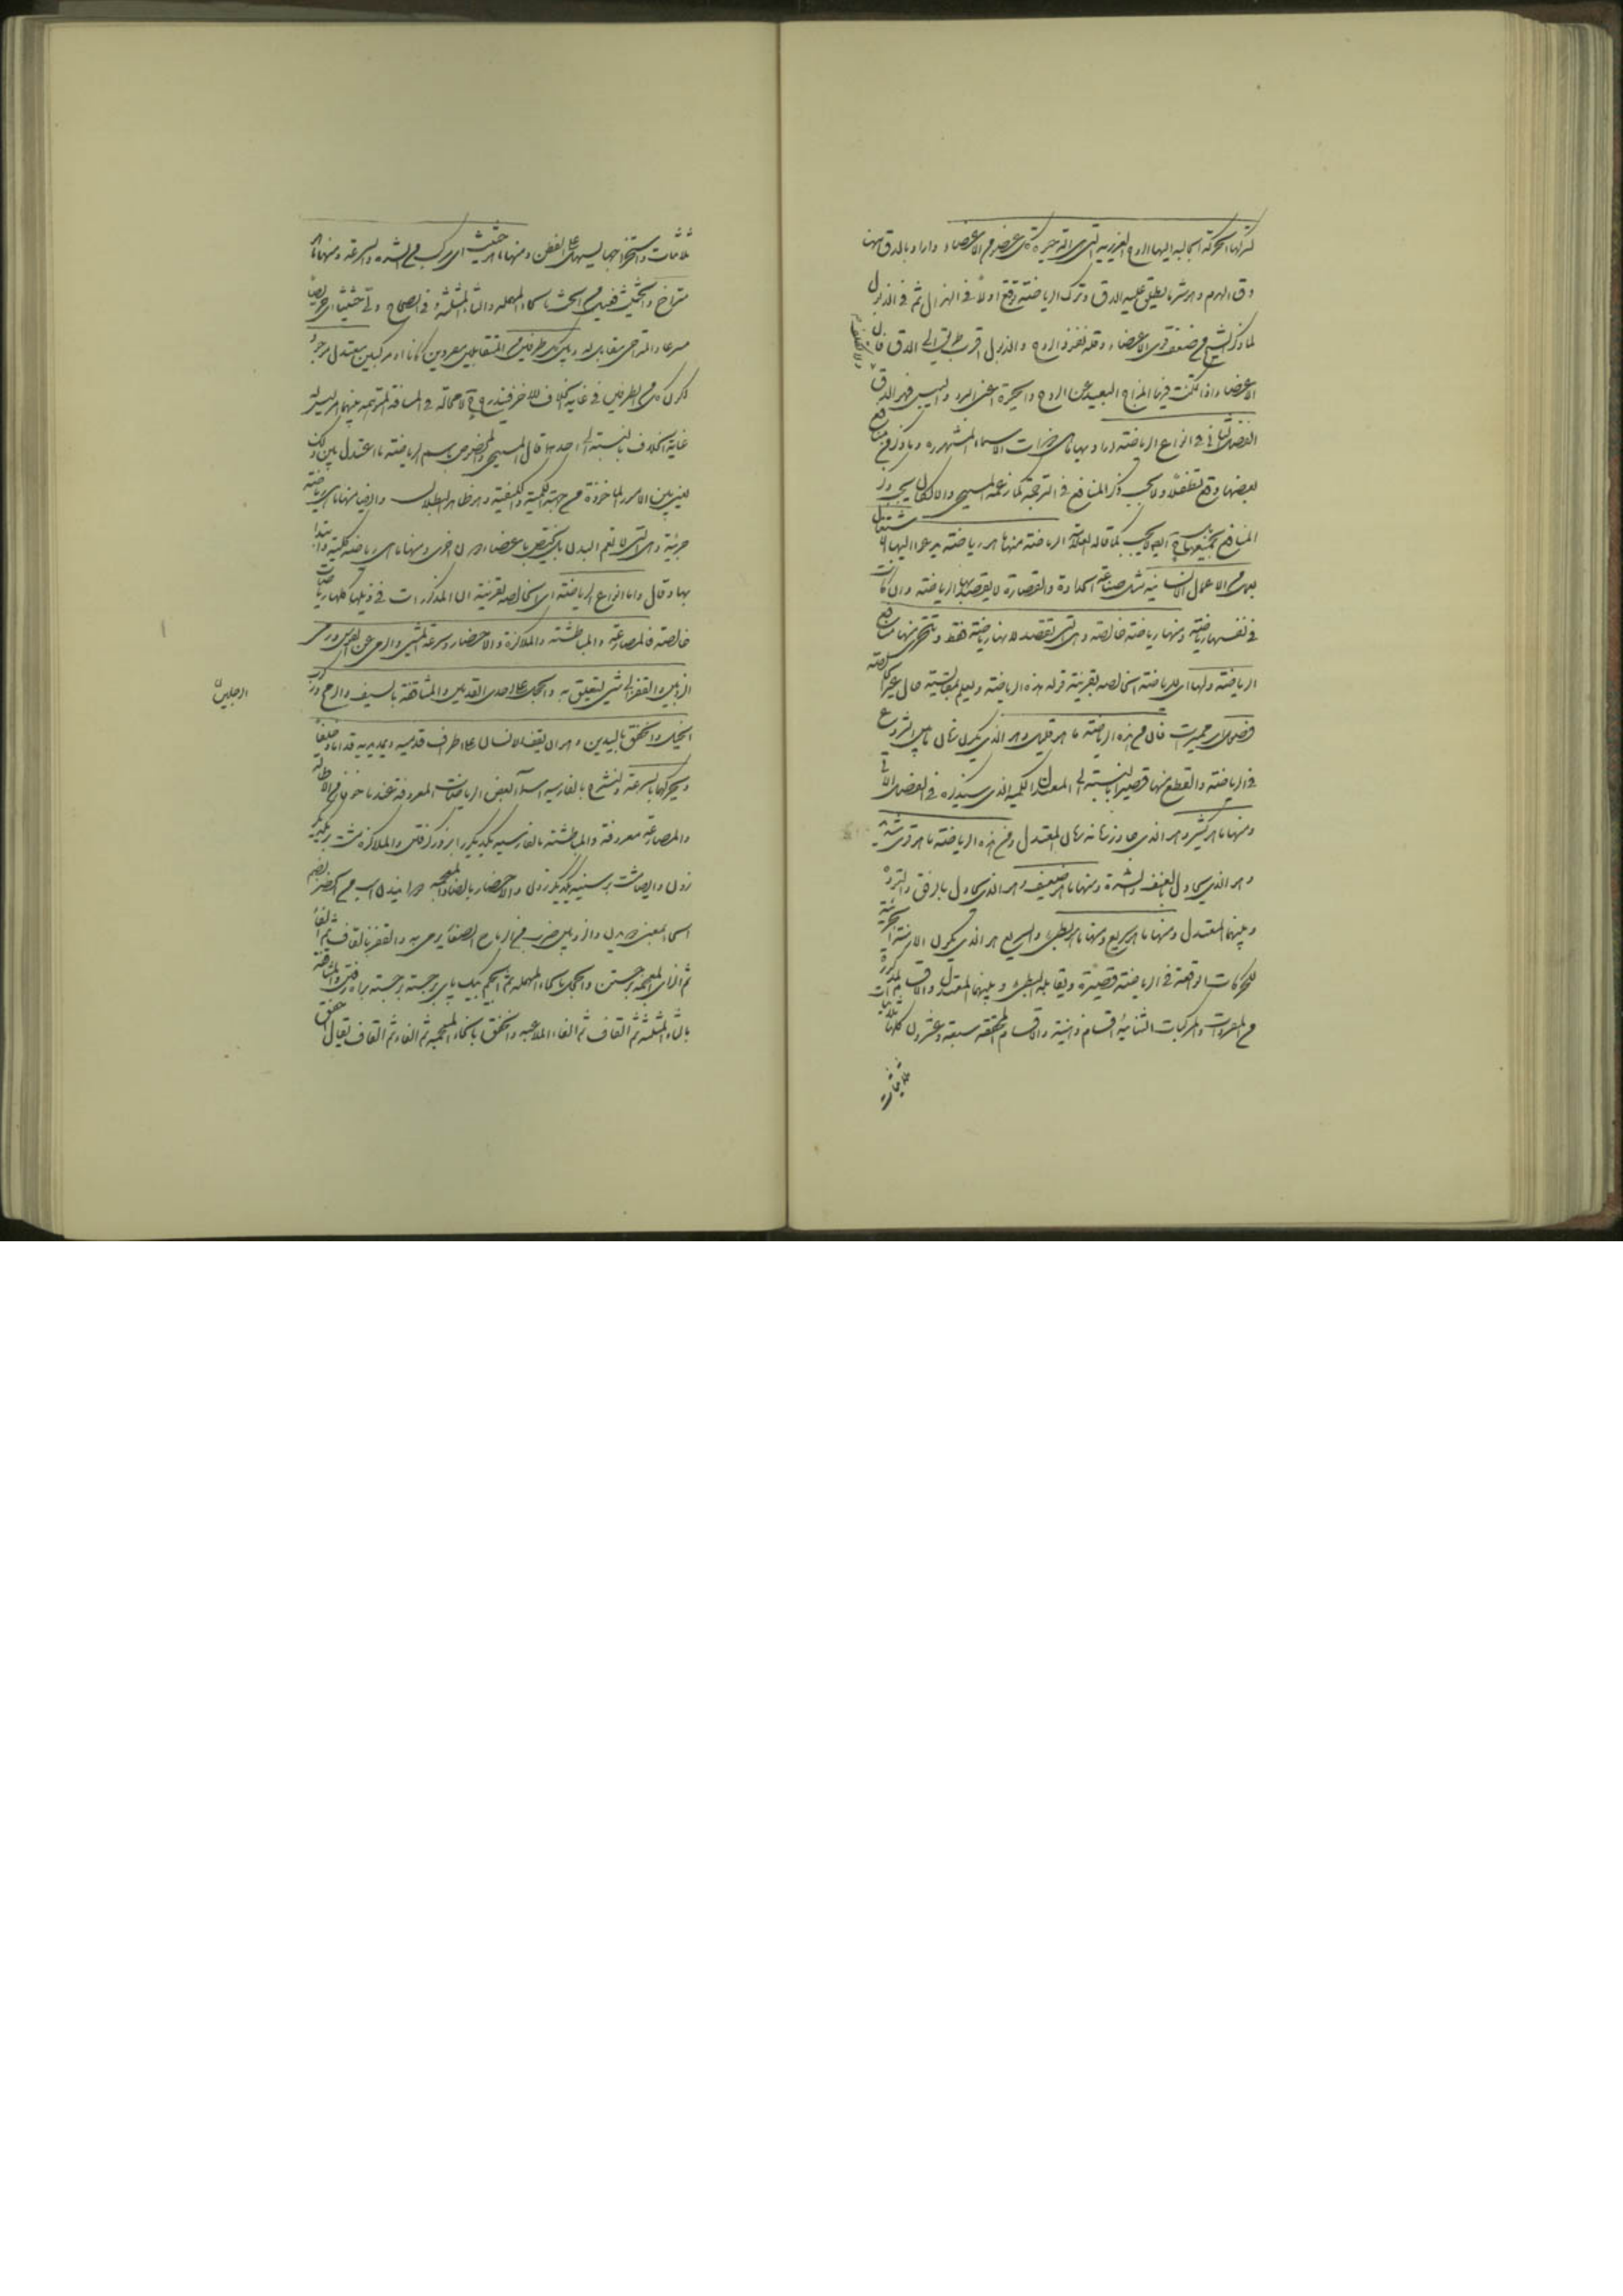 لتركها الحركة الجالبة اليها الروح الغريزية التي هي الة حيوة كل عضو من الاعضاء واراد بالدق ههنا
دق الهرم وهو شيء يطلق عليه الدق وترك الرياضة يوقع اولا في الهزال ثم في الذبول
لما ذكر الشيخ من ضعف قوى الاعضاء وقلة نفوذ الروح والذبول اقرب طريق الى الدق فان
الاعضاء اذا تمكنت فيها المزاج البعيد عن الروح والحيوة اعني البرد واليبس فهو الدق
الفصل الثاني في انواع الرياضة اراد بها ما هي ذوات الاسماء المشهورة وما ذكر من منافع
بعضها وقع تطفلا ولا يجب ذكر المنافع في الترجمة كما زعمه المسيحي والا لكان يجب ذكر
المنافع بجميعها ايضا لا يجب كما قاله العلامة الرياضة منها ما هي رياضة يدعو اليها الاشتغال
بعمل من الاعمال الانسانية مثل صناعة الحدادة والقصارة لا يقصد بها الرياضة وان كانت
في نفسها رياضة ومنها رياضة خالصة وهي التي تقصد لانها رياضة فقط ويتحرى منها منافع
الرياضة ولها اي للرياضة الخالصة بقرينة قوله هذه الرياضة ويعلم بمقايسة حال غير الخالصة
فصول اي مميزات فان من هذه الرياضة ما هو قليل وهو الذي يكون زمان ما بين الشروع
في الرياضة والقطع منها قصيرا بالنسبة الى المعتدل الكمية الذي سيذكره في الفصل الاتي
ومنها ما هو كثير وهو الذي جاوز زمانه زمان المعتدل ومن هذه الرياضة ما هو قوي شديد
وهو الذي يحاول بالعنف والشدة ومنها ما هو ضعيف وهو الذي يحاول بالرفق والتؤدة
وبينهما المعتدل ومنها ما هو سريع ومنها ما هو بطيء والسريع هو الذي يكون الازمنة الجزئية
للحركات الواقعة في الرياضة قصيرة ويقابله البطيء وبينهما المعتدل والاقسام المذكورة
من المفردات والمركبات الثنائية اقسام ذهنية والاقسام المحققة سبعة وعشرون كلها ثلاثيات
ثلاثيات واستخراجها ليسهل على الفطن ومنها ما هو حثيث اي مركب من الشدة والسرعة ومنها ما هو
متراخ والحثيث فعيل من الحث بالحاء المهملة والثاء المثلثة وفي الصحاح ولى حثيثا اي حريصا
مسرعا والمتراخي مقابل له وبين كل طرفين من المتقابلين مفردين كانا او مركبين معتدل موجود
لكون كل من الطرفين في غاية الخلاف للاخر فيندرج لا محالة في المسافة المتوهمة بينهما ما ليس له
غاية الخلاف بالنسبة الى احدهما قال المسيحي والمخصوص باسم الرياضة ما اعتدل بين ذلك
يعني بين الامور الماخوذة من جهة الكمية والكيفية وهو ظاهر البطلان وايضا منها ما هي رياضة
جزئية وهي التي لا تعم البدن بل تختص باعضاء دون اخرى ومنها ما هي رياضة كلية وابتدا
بها وقال واما انواع الرياضة اي الخالصة بقرينة ان المذكورات في ذيلها كلها رياضات
خالصة فالمصارعة والمباطشة والملاكزة والاحضار وسرعة المشي والرمي عن القوس ورمي
الزوبين والقفز الى شيء ليتعلق به والحجل على احدى القدمين والمثاقفة بالسيف والرمح وركوب
الخيل والخفق باليدين وهو ان يقف الانسان على اطراف قدميه ويمد يديه قداما وخلفا
ويحركهما بالسرعة ولنشرح بالفارسية اسماء بعض الرياضات المعروفة عندنا خوفا من الاطالة
والمصارعة معروفة والمباطشة بالفارسية يكديكر را بزور كرفتن والملاكزة مشت بر يكديكر
زدن وايضا مشت بر سينه يكديكر زدن والاحضار بالضاد المعجمة دوانيدن اسب من الحضر بضم
الحاء بمعنى دويدن والزوبين ضرب من الرماح الصغار يرمى به والقفز بالقاف ثم الفاء
ثم الزاي المعجمة برجستن والحجل بالحاء المهملة ثم الجيم بيك پاي برجسته برجسته براه رفتن والمثاقفة
بالثاء المثلثة ثم القاف ثم الفاء الملاعبة والخفق بالخاء المعجمة ثم الفاء ثم القاف يقال خفق
الرجلين